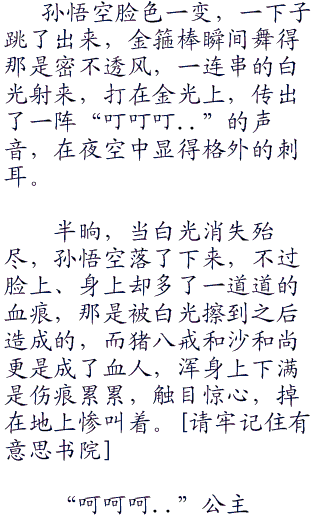 孙悟空脸色一变，一下子
跳了出来，金箍棒瞬间舞得
那是密不透风，一连串的白
光射来，打在金光上，传出
了一阵“叮叮叮..”的声
音，在夜空中显得格外的刺
耳。
半晌，当白光消失殆
尽，孙悟空落了下来，不过
脸上、身上却多了一道道的
血痕，那是被白光擦到之后
造成的，而猪八戒和沙和尚
更是成了血人，浑身上下满
是伤痕累累，触目惊心，掉
在地上惨叫着。[请牢记住有
意思书院]
“呵呵呵..”公主